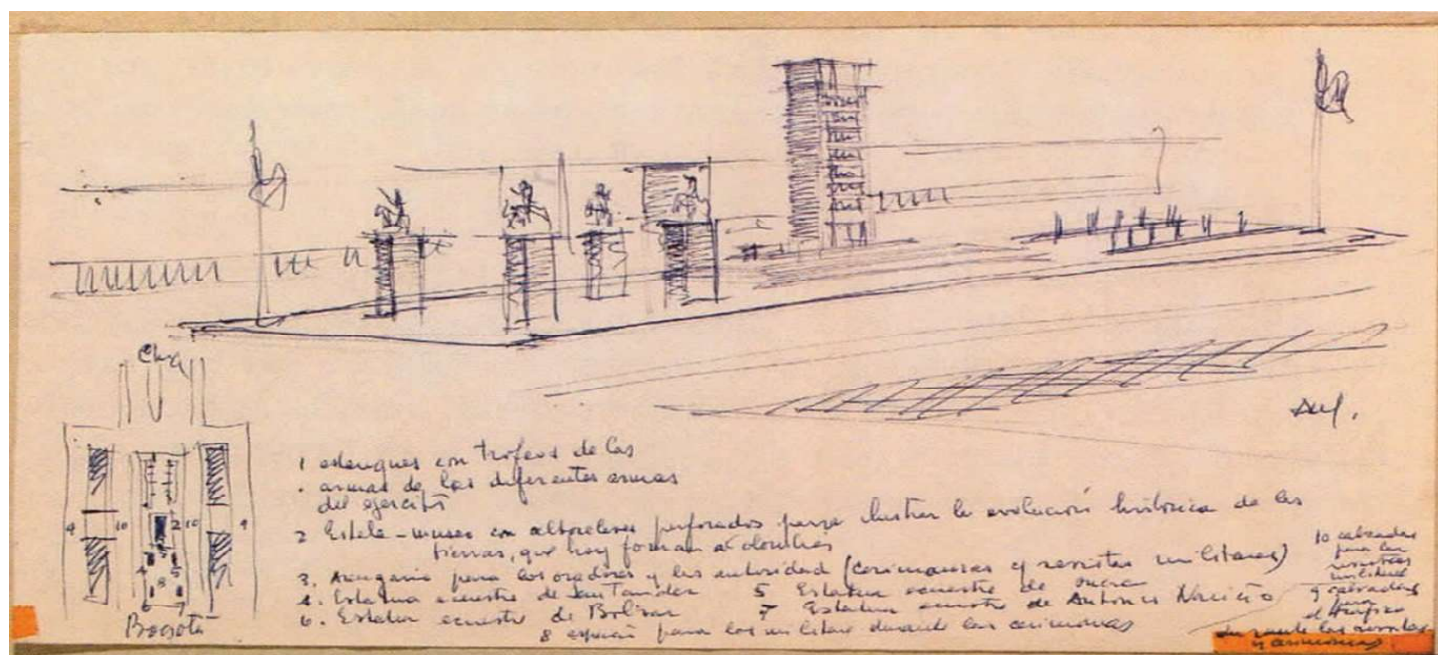 Chia
4 10 2 10 9
4 5
3
6 7
8
Bogotá
1 estanques con trofeos de las
armas de las diferentes armas
del ejercito
2 Estela-museo con altorelieves perforados para ilustrar la evolución historica de las
tierras, que hoy forman a
3. para los oradores y las autoridad (cerimonias y revistas militares)
4. Estatua ecuestre de Santander 5 Estatua ecuestre de Sucre
6. Estatua ecuestre de Bolivar 7 Estatua ecuestre de Antonio Nariño
8 espacio para los militares durante las cerimonias
10 calzadas
para las
revistas
militares
9 calzadas
durante las revistas
y cerimonias